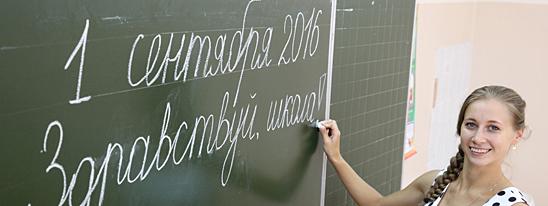 1 сентября 2016
Здравствуй, школа!